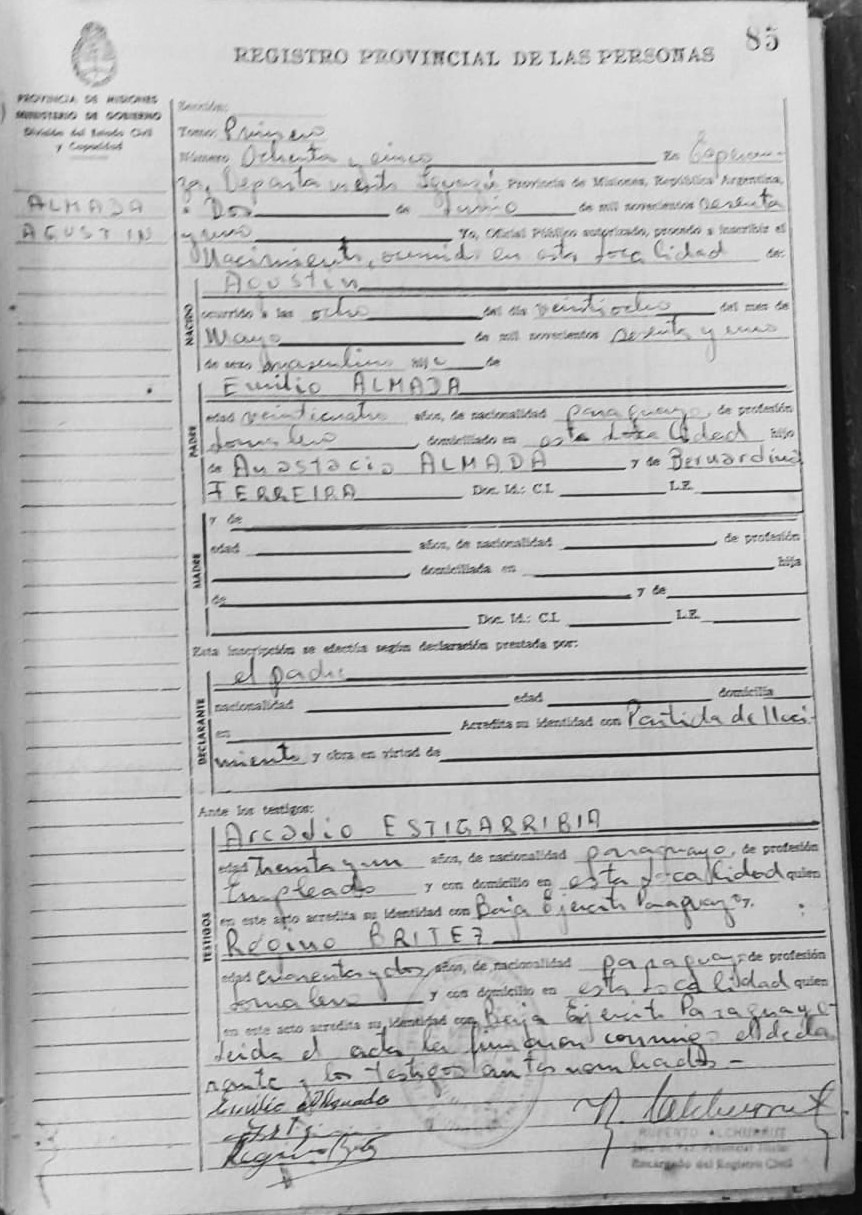 85
REGISTRO PROVINCIAL DE LAS PERSONAS
PROVINCIA DE MISIONES
MINISTERIO DE GOBIERNO
División del Estado Civil
y Capacidad
ALMADA
AGUSTIN
Sección:
Tomo: Primero
Número Ochenta y cinco En Esperan-
za, Departamento Iguazú Provincia de Misiones, República Argentina,
a Dos de Junio de mil novecientos sesenta
y uno Yo, Oficial Público autorizado, procedo a inscribir el
Nacimiento, ocurrido en esta localidad de:
NACIDO
Agustin
ocurrido a las ocho del día veintiocho del mes de
Mayo de mil novecientos sesenta y uno
de sexo masculino hijo de
PADRE
Emilio ALMADA
edad veinticuatro años, de nacionalidad paraguayo, de profesión
Jornalero, domiciliado en esta localidad hijo
de Anastacio ALMADA y de Bernardina
FERREIRA Doc. Id.: C.I. L.E.
MADRE
y de
edad años, de nacionalidad , de profesión
, domiciliada en hija
de y de
Doc. Id.: C.I. L.E.
Esta inscripción se efectúa según declaración prestada por:
DECLARANTE
el padre
nacionalidad edad domicilia
en Acredita su identidad con Partida de Naci-
miento y obra en virtud de
Ante los testigos:
TESTIGOS
Arcadio ESTIGARRIBIA
edad treinta y un años, de nacionalidad paraguayo, de profesión
Empleado y con domicilio en esta localidad quien
en este acto acredita su identidad con Baja Ejercito Paraguayo y.
Regino BRITEZ
edad cuarenta y dos, años, de nacionalidad paraguayo, de profesión
Jornalero y con domicilio en esta localidad quien
en este acto acredita su identidad con Baja Ejercito Paraguayo-
Leida el acta la firmaron conmigo el decla
rante y los testigos antes nombrados.-
Emilio Almada
Regino Britez
RUPERTO ALCHURRUT
Encargado del Registro Civil